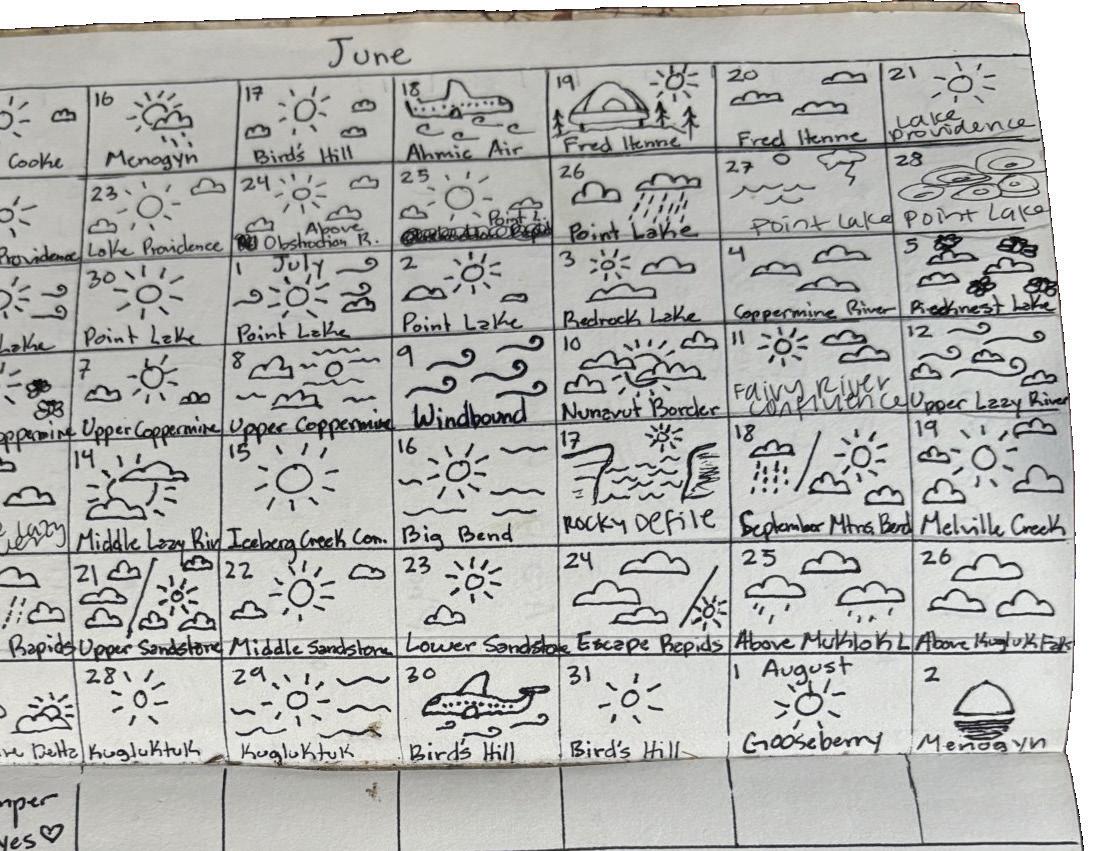 June
16 17 18 19 20 21
Cooke Menogyn Bird's Hill Ahmic Air Fred Henne Fred Henne Lake Providence
23 24 25 26 27 28
Providence Lake Providence Above Obstruction R. Point L. Point Lake Point Lake Point Lake
30 1 July 2 3 4 5
Lake Point Lake Point Lake Point Lake Redrock Lake Coppermine River Rocknest Lake
7 8 9 10 11 12
oppermine Upper Coppermine Upper Coppermine Windbound Nunavut Border Fairy River Confluence Upper Lazy River
14 15 16 17 18 19
Lazy Middle Lazy Riv Iceberg Creek Con. Big Bend ROCKY DEFILE September Mtns Bend Melville Creek
21 22 23 24 25 26
Rapids Upper Sandstone Middle Sandstone Lower Sandstone Escape Rapids Above Muklok L Above Kugluk Falls
28 29 30 31 1 August 2
Delta Kugluktuk Kugluktuk Bird's Hill Bird's Hill Gooseberry Menogyn
mper
yes ♡